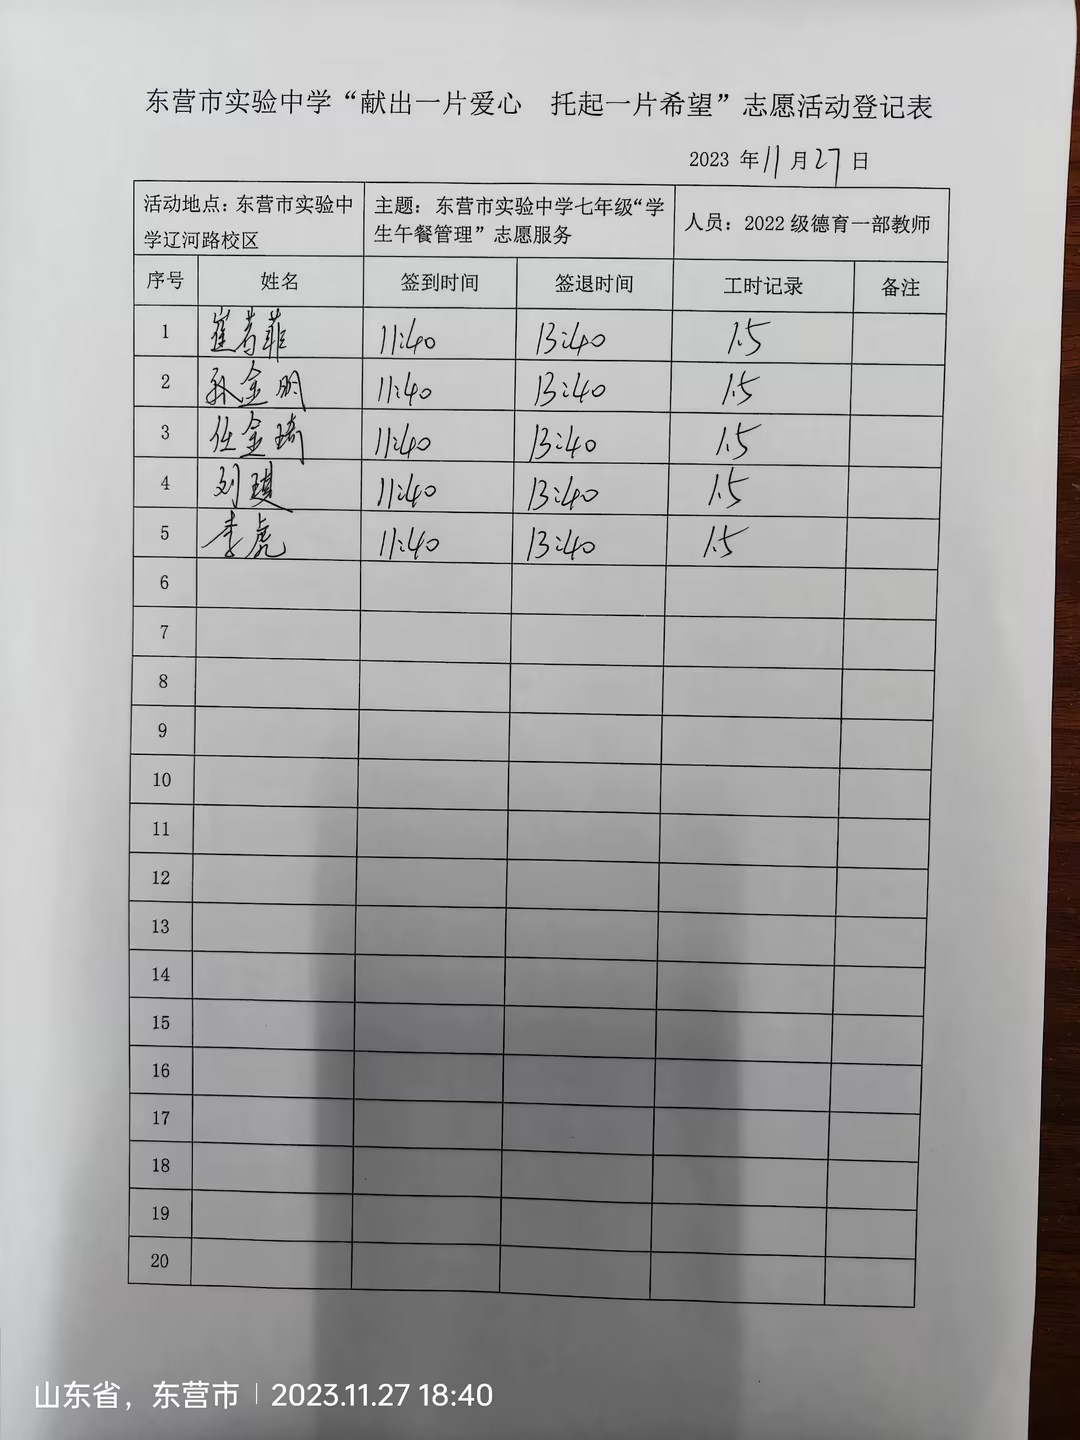 东营市实验中学“献出一片爱心　托起一片希望”志愿活动登记表
2023 年 11 月 27 日
活动地点：东营市实验中学辽河路校区 主题：东营市实验中学七年级“学生午餐管理”志愿服务 人员：2022 级德育一部教师
序号 姓名 签到时间 签退时间 工时记录 备注
1 崔 菲 11:40 13:40 1.5
2 孙金明 11:40 13:40 1.5
3 任金琦 11:40 13:40 1.5
4 刘琪 11:40 13:40 1.5
5 李虎 11:40 13:40 1.5
6
7
8
9
10
11
12
13
14
15
16
17
18
19
20
山东省，东营市 | 2023.11.27 18:40